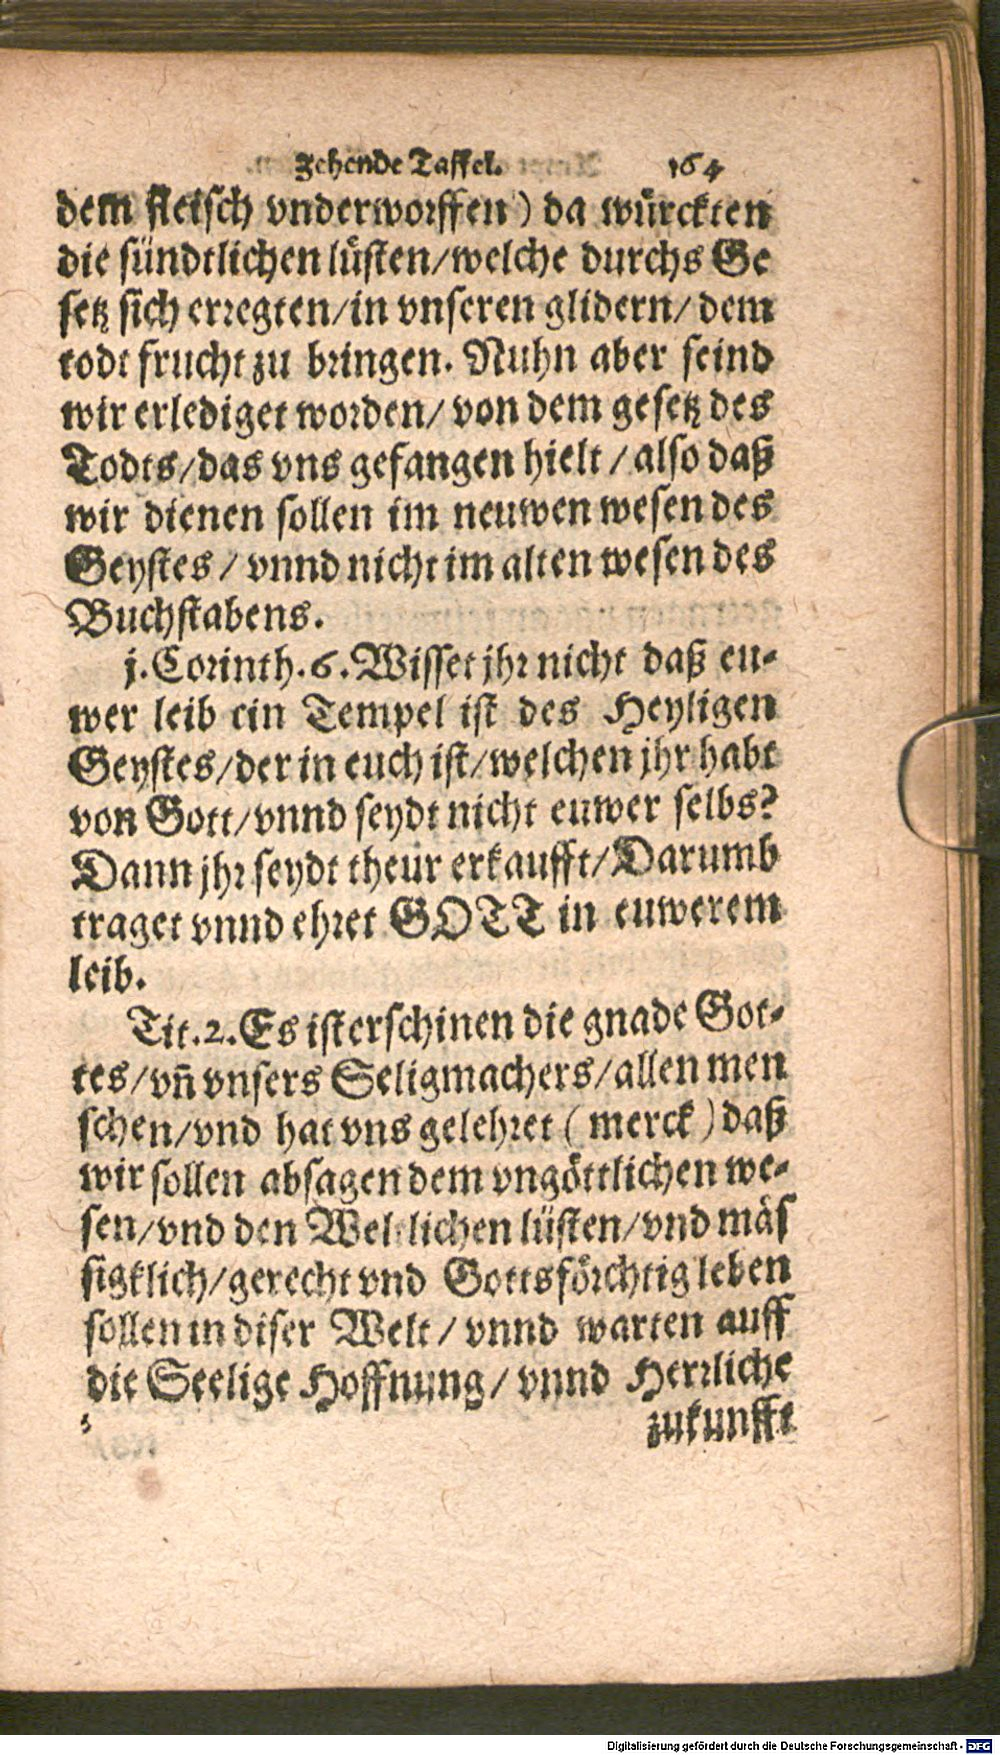 Zehende Taffel. 164
dem fleisch vnderworffen) da würckten
die sündtlichen lüsten/welche durchs Ge
setz sich erregten/in vnseren glidern/dem
todt frucht zu bringen. Nuhn aber seind
wir erlediget worden/von dem gesetz des
Todts/das vns gefangen hielt/also daß
wir dienen sollen im neuwen wesen des
Geystes/vnnd nicht im alten wesen des
Buchstabens.
j.Corinth.6. Wisset jhr nicht daß eu-
wer leib ein Tempel ist des Heyligen
Geystes/der in euch ist/welchen jhr habt
von Gott/vnnd seydt nicht euwer selbs?
Dann jhr seydt theur erkaufft/Darumb
traget vnnd ehret GOTT in euwerem
leib.
Tit.2. Es ist erschinen die gnade Got-
tes/vñ vnsers Seligmachers/allen men
schen/vnd hat vns gelehret (merck) daß
wir sollen absagen dem vngöttlichen we-
sen/vnd den Weltlichen lüsten/vnd mäs
sigklich/gerecht vnd Gottsförchtig leben
sollen in diser Welt/vnnd warten auff
die Seelige Hoffnung/vnnd Herrliche
zukunfft
Digitalisierung gefördert durch die Deutsche Forschungsgemeinschaft - DFG